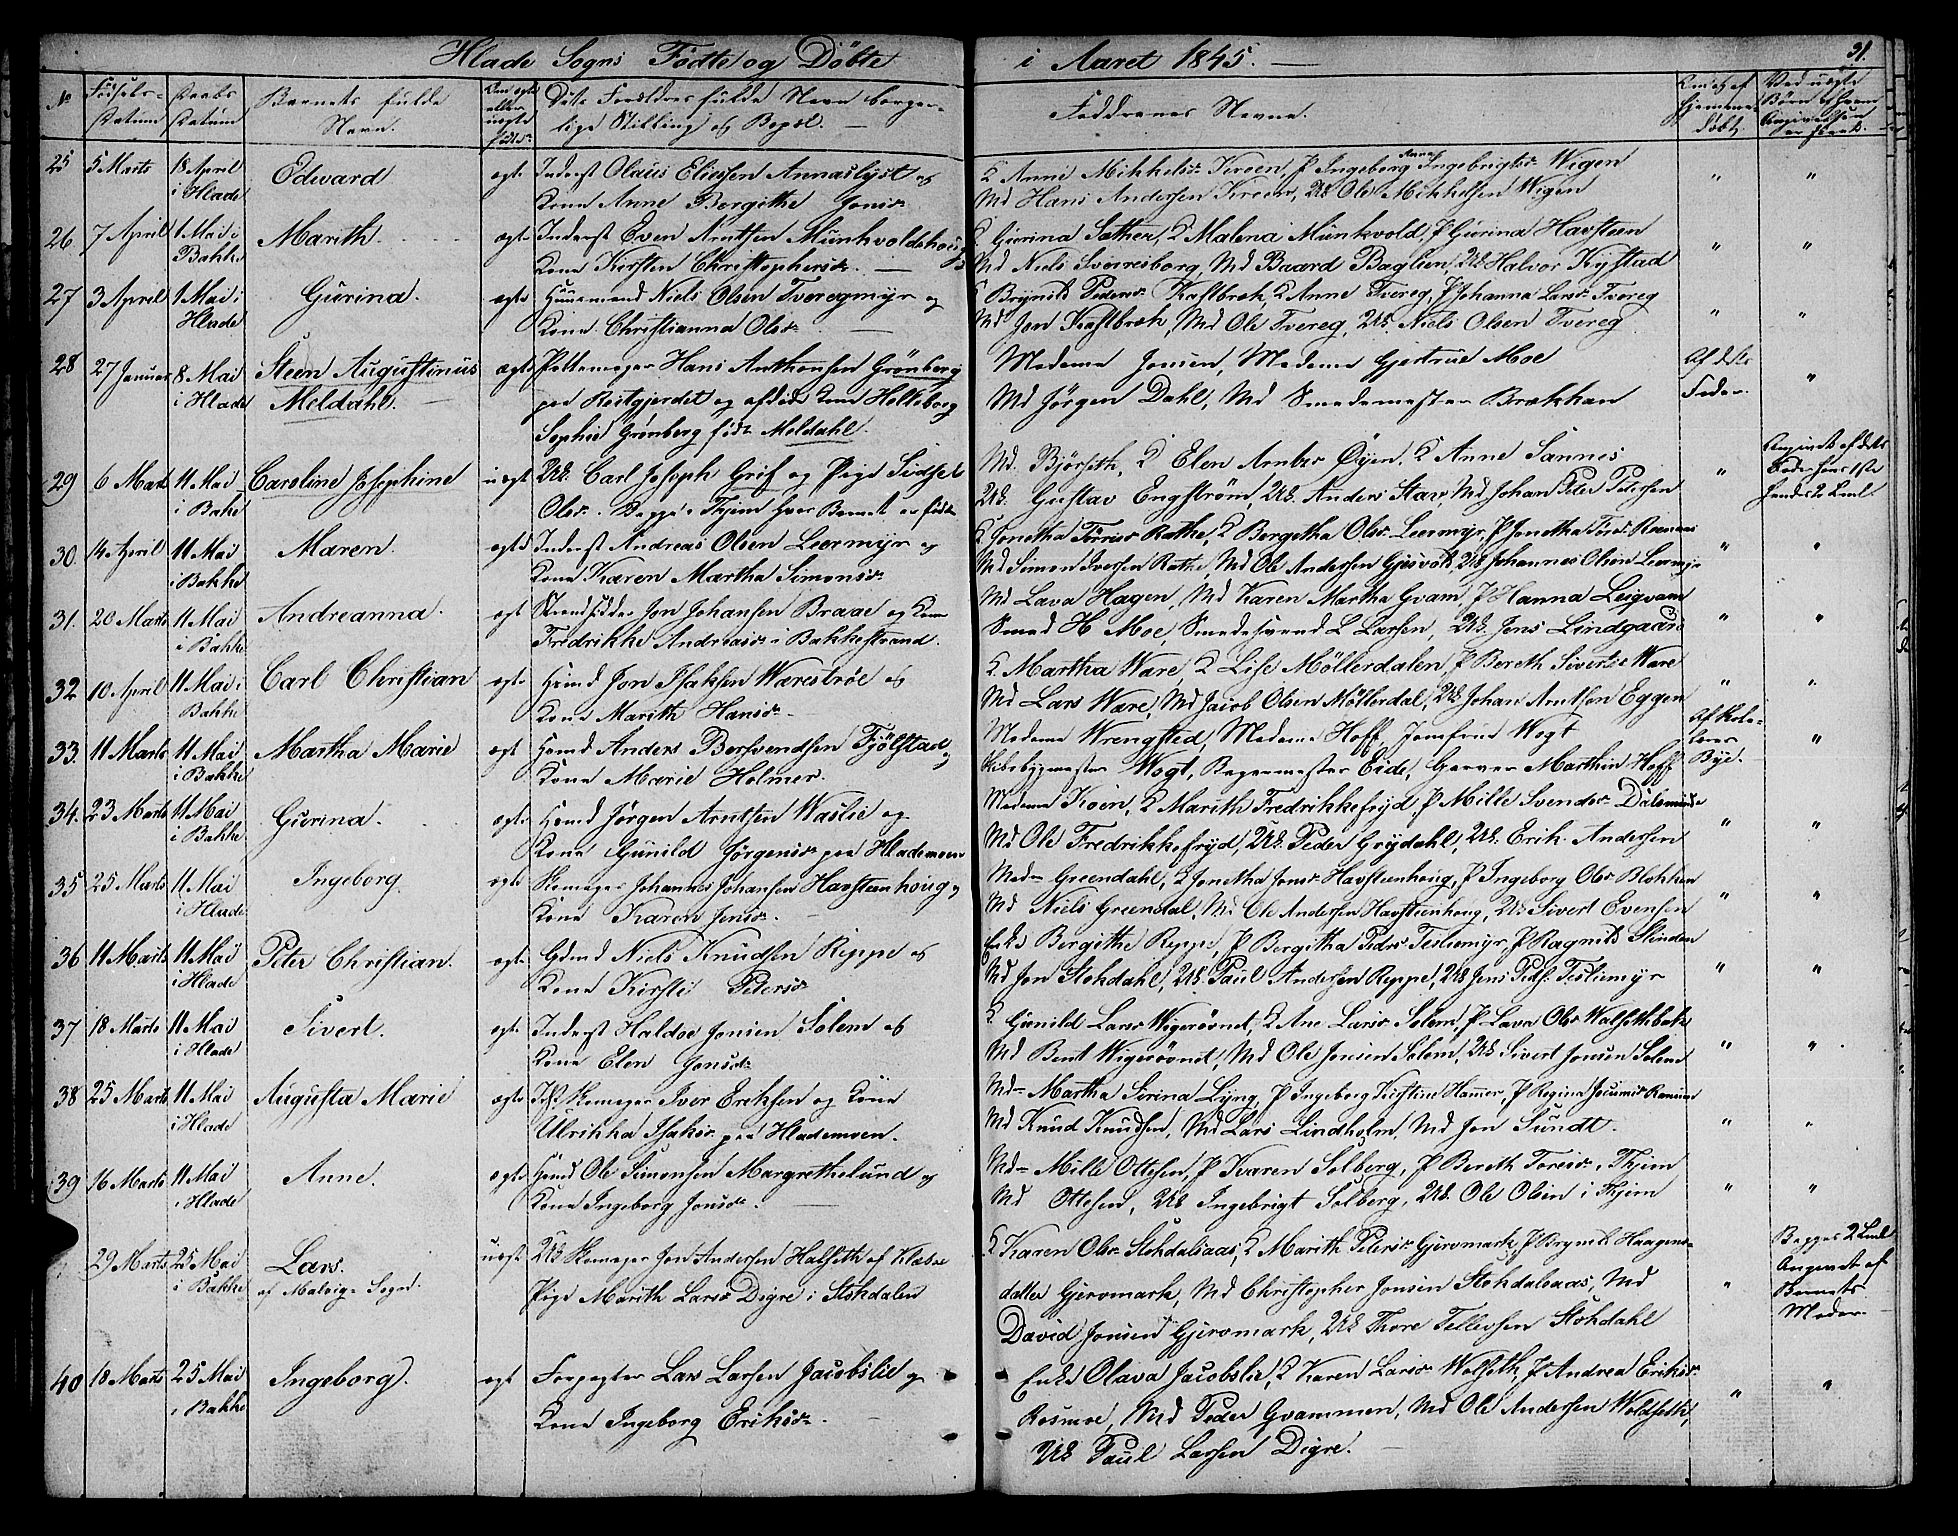 Hlade Sogns Födte og Döbte i Aaret 1845. 31.
No Födsels-Datum Daabs Datum Barnets fulde Navn. Om ægte eller uægte födt Dets Forældres fulde Navn borgerlige Stilling og Bopæl. Faddrenes Navne. Om det er hjemmedöbt Ved uægte Börn af hvem Angivelsen er skeet.
25 5 Marts 18 April i Hlade Edward ægte Inderst Olaus Eliesen Annaslyst og
Kone Anne Borgithe Jonsd.
K Anne Mikkelsd. Kroen, P Ingeborg Anne Ingebrigtsd. Wigen " "
Md Hans Andersen Kroen, Uk Ole Mikkelsen Wigen
26 7 April 1 Mai i Bakke Marith. ægte Inderst Even Arntsen Munkvoldshoug
Kone Kirsten Christophersd.
K. Gurina Sæther, K Malena Munkvold, P Gurina Havsteen
Md Niels Sverresborg, Md Baard Baglien, Uk Halvor Kystad " "
27 3 April 1 Mai i Hlade Gurina. ægte Huusmand Niels Olsen Tveregmyr og
Kone Christianna Olsd.
K Brynild Pedersd. Kastbrek, K Anne Tvereg, P Johanna Larsd. Tvereg
Md Jon Kastbrek, Md Ole Tvereg, Uk. Niels Olsen Tvereg " "
28 27 Januar 8 Mai i Hlade Steen Augustinus Meldahl. ægte Pottemager Hans Anthonsen Grönberg
paa Rostgjerdet og afdöde Kone Helleborg
Sophie Grönberg föd Meldahl.
Madame Jensen, Madame Gjertrue Moe
Md Jörgen Dahl, Md Smedemester Brækhan Af dets Fader. "
29 6 Marts 11 Mai i Bakke Caroline Josephine uægt Uk. Carl Joseph Grif og Pige Sidsel
Olsd. Begge i Thjem hvor Barnet er födt
Md. Björseth, K Elen Arntsd Öyen, K Anne Sannes
Uk. Gustav Engström, Uk. Anders Stav, Md Johan Peder Petersen " Angivet af dets Fader
30. 14 April 11 Mai i Bakke Maren. ægte Inderst Andreas Olsen Leermyr og
Kone Karen Martha Simonsd.
K Jonetha Rathe, K Bergetha Olsd. Leermyr, P Jonetha
Md Simon Iversen Rathe, Md Ole Andersen Gjesvok, Uk Johannes Olsen Leermyr " "
31. 20 Marts 11 Mai i Bakke Andreanna. ægt Strandsidder Jon Johansen Braae og Kone
Fredrikke Andreasd. Bakkestrand.
Md Lava Hagen, Md Karen Martha Gvam, P Hanna Leigvam
Smed H Moe, Smedesvend L Larsen, Uk. Jens Lindgaard " "
32 10 April 11 Mai i Bakke Carl Christian ægte Hsmd Jon Isaksen Wæreströe og
Kone Marith Hansd.
K Martha Ware, K Lise Möllerdalen, P Bereth Sivertsd. Ware
Md Lars Ware, Md Jacob Olsen Möllerdal, Uk Johan Arntsen Eggen " "
33. 11 Marts 11 Mai i Bakke Martha Marie ægt Hsmd Anders Bersvendsen Fjölstad og
Kone Marie Holmer.
Madame Wrengsted, Madame Hoff, Jomfrue Wogt
Skibsbygmester Wogt, Bagermester Eide, Garver Marthin Hoff Af Skolelærer Bye. "
34. 23 Marts 11 Mai i Bakke Gurina. ægte Hsmd Jörgen Arntsen Waslie og
Kone Gunild Jörgensd. paa Hlademoen
Madame Koen, K Marith Fredrikkefryd, P Mille Svendsd.
Md Ole Fredrikkefryd, Uk. Peder Grydahl, Uk. Erik Andersen " "
35 25 Marts 11 Mai i Hlade Ingeborg. ægte Skomager Johannes Johansen Havsteenhoug og
Kone Karen Jensd.
Md Greendahl, K Jonetha Jonsd Havsteenhoug, P Ingeborg Olsd Blokken
Md Niels Greendal, Md Ole Andersen Havsteenhoug, Uk Sivert Evensen " "
36 11 Marts 11 Mai i Hlade Peter Christian. ægte Gdmd Niels Knudsen Reppe og
Kone Kirsti Petersd.
Enke Bergithe Reppe, P Bergitha Pedsd Teslemyr, P Ragnild Stinden
Md Jon Stokdahl, Uk. Paul Andersen Reppe, Uk Jens Peds. Teslemyr " "
37 18 Marts 11 Mai i Hlade Sivert. ægte Inderst Haldoe Jonsen Solem og
Kone Elen Jonsd.
K Gunild Larsd Wigerövnet, K Ane Larsd. Solem, P Lava Olsd Walsethbak
Md Bent Wigerövnet, Md Ole Jonsen Solem, Uk Sivert Jonsen Solem " "
38 25 Marts 11 Mai i Hlade Augusta Marie ægte Skomager Iver Eriksen og Kone
Ulrikka Isaksd. paa Hlademoen.
Md Martha Serina Lyng, P Ingeborg Kirstine Hammer, P Regina
Md Knud Knudsen, Md Lars Lindholm, Md Jon Sundt. " "
39 16 Marts 11 Mai i Hlade Anne. ægte Hsmd Ole Simonsen Margrethelund og
Kone Ingeborg Jonsd.
Md Mille Ottesen, P Karen Solberg, P Bereth Toresd. i Thjem
Md Ottesen, Uk Ingebrigt Solberg, Uk. Ole Olsen i Thjem " "
29 Marts 25 Mai i Bakke Lars. af Malvig Sogn. uægt Uk Skomager Jon Andersen Halseth af Klæbo
Pige Marith Larsd Digre i Stokdalen
K Karen Olsd. Stokdalsaas, K Marith Petersd. Gjervmark, P Brynild Haagens-
datter Gjervmark, Md Christopher Jonsen Stokdalsaas, Md
David Jonsen Gjervmark, Uk Thore Tellevsen Stokdahl " Begges 2 Leiermaal Angivet af Barnets Moder.
40 18 Marts 25 Mai i Bakke Ingeborg. ægt Forpagter Lars Larsen Jacobslie og
Kone Ingeborg Eriksd.
Enke Olava Jacobslie, K Karen Larsd Walseth, P Andrea Eriksd.
Rosmoe, Md Peder Gvammen, Md Ole Andersen Woldseth,
Uk Paul Larsen Digre. " "